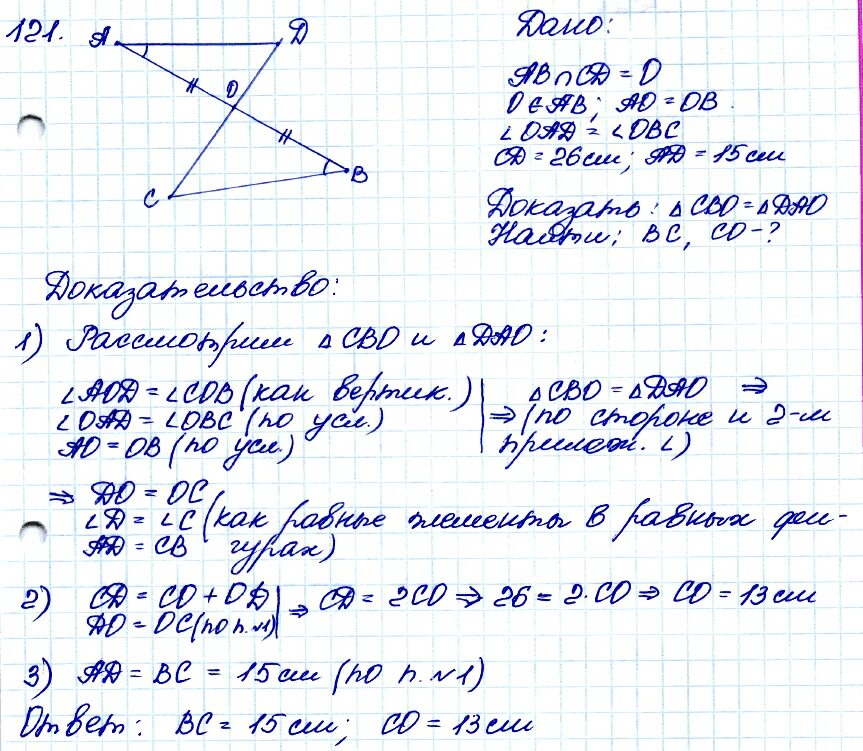 121.
A
D
O
C
B
Дано:
AB ∩ CD = O
O ∈ AB; AO = OB.
∠OAD = ∠OBC
CD = 26 см; AD = 15 см
Доказать: △CBO = △DAO
Найти; BC, CO - ?
Доказательство:
1) Рассмотрим △CBO и △DAO:
∠AOD = ∠COB (как вертик.)
∠OAD = ∠OBC (по усл.)
AO = OB (по усл.)
△CBO = △DAO ⇒
⇒ (по стороне и 2-м
прилеж. ∠)
⇒ DO = OC
∠D = ∠C (как равные элементы в равных фи-
AD = CB гурах)
2) CD = CO + OD
DO = OC (по п. №1)
⇒ CD = 2CO ⇒ 26 = 2·CO ⇒ CO = 13 см
3) AD = BC = 15 см (по п. №1)
Ответ: BC = 15 см; CO = 13 см